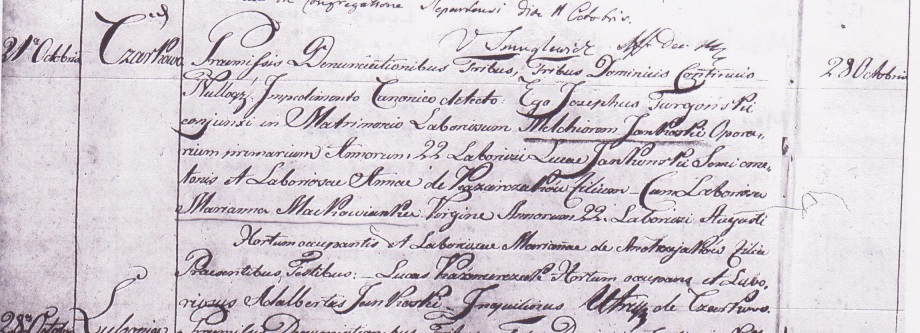 in Congregatione die 11 Octobris.
21a Octobris Czarkowo Praemissis Denunciationibus Tribus, Tribus Dominicis Continuis 28 Octobris
Nulloq; Impedimento Canonico detecto: Ego Josephus Turgonski
conjunxi in Matrimonio Laboriosum Melchiorem Jankoski Opera-
rium Annorum 22 Laboriosi Lucae Jankowski Semicme-
tonis et Laboriosae Annae de Kazmerzaków Filium – Cum Laboriosa
Marianna Maćkowianka Virgine Annorum 22. Laboriosi Augusti
Hortum occupantis et Laboriosae Marianae de Filia
Praesentibus Testibus: – Lucas Kazmerczak Hortum occupans et Labo-
riosus Adalbertus Jankoski Inquilinus Utriq; de Czarkowo.
28a Octobris Praemissis Denunciationibus Tribus Tribus Dominicis